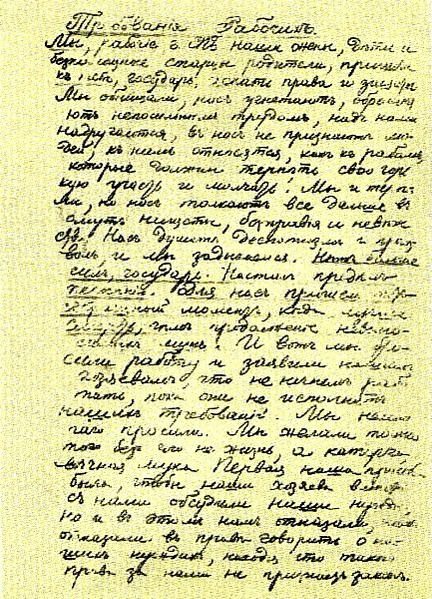 Требованія Рабочихъ.
Мы, рабочіе г. СПб наши жены, дѣти и
безпомощные старцы родители, пришли
къ тебѣ, государь, искать правды и защиты
Мы обнищали, насъ угнетаютъ, обремен
яютъ непосильнымъ трудомъ, надъ нами
надругаются, въ насъ не признаютъ лю-
дей, къ намъ относятся, какъ къ рабамъ
которые должны терпѣть свою горь
кую участь и молчать. Мы и терпѣ
ли, но насъ толкаютъ все дальше въ
омутъ нищеты, безправья и невѣже
ства. Насъ душатъ деспотизмъ и произ
волъ, и мы задыхаемся. Нѣтъ больше
силъ, государь. Насталъ предѣлъ
терпѣнія. Для насъ пришелъ
моментъ, когда лучше
смерть, чѣмъ продолженіе невыно-
симыхъ мукъ. И вотъ мы бро-
сили работу и заявили нашимъ
хозяевамъ, что не начнемъ рабо
тать, пока они не исполнятъ
нашихъ требованій. Мы немно
гаго просили. Мы желали только
того безъ чего не жизнь, а каторга
вѣчная мука. Первая наша просьба
была, чтобы наши хозяева вмѣстѣ
съ нами обсудили наши нужды,
но и въ этомъ намъ отказали,
отказали въ правѣ говорить о на-
шихъ нуждахъ, находя, что такого
права за нами не признаетъ законъ.